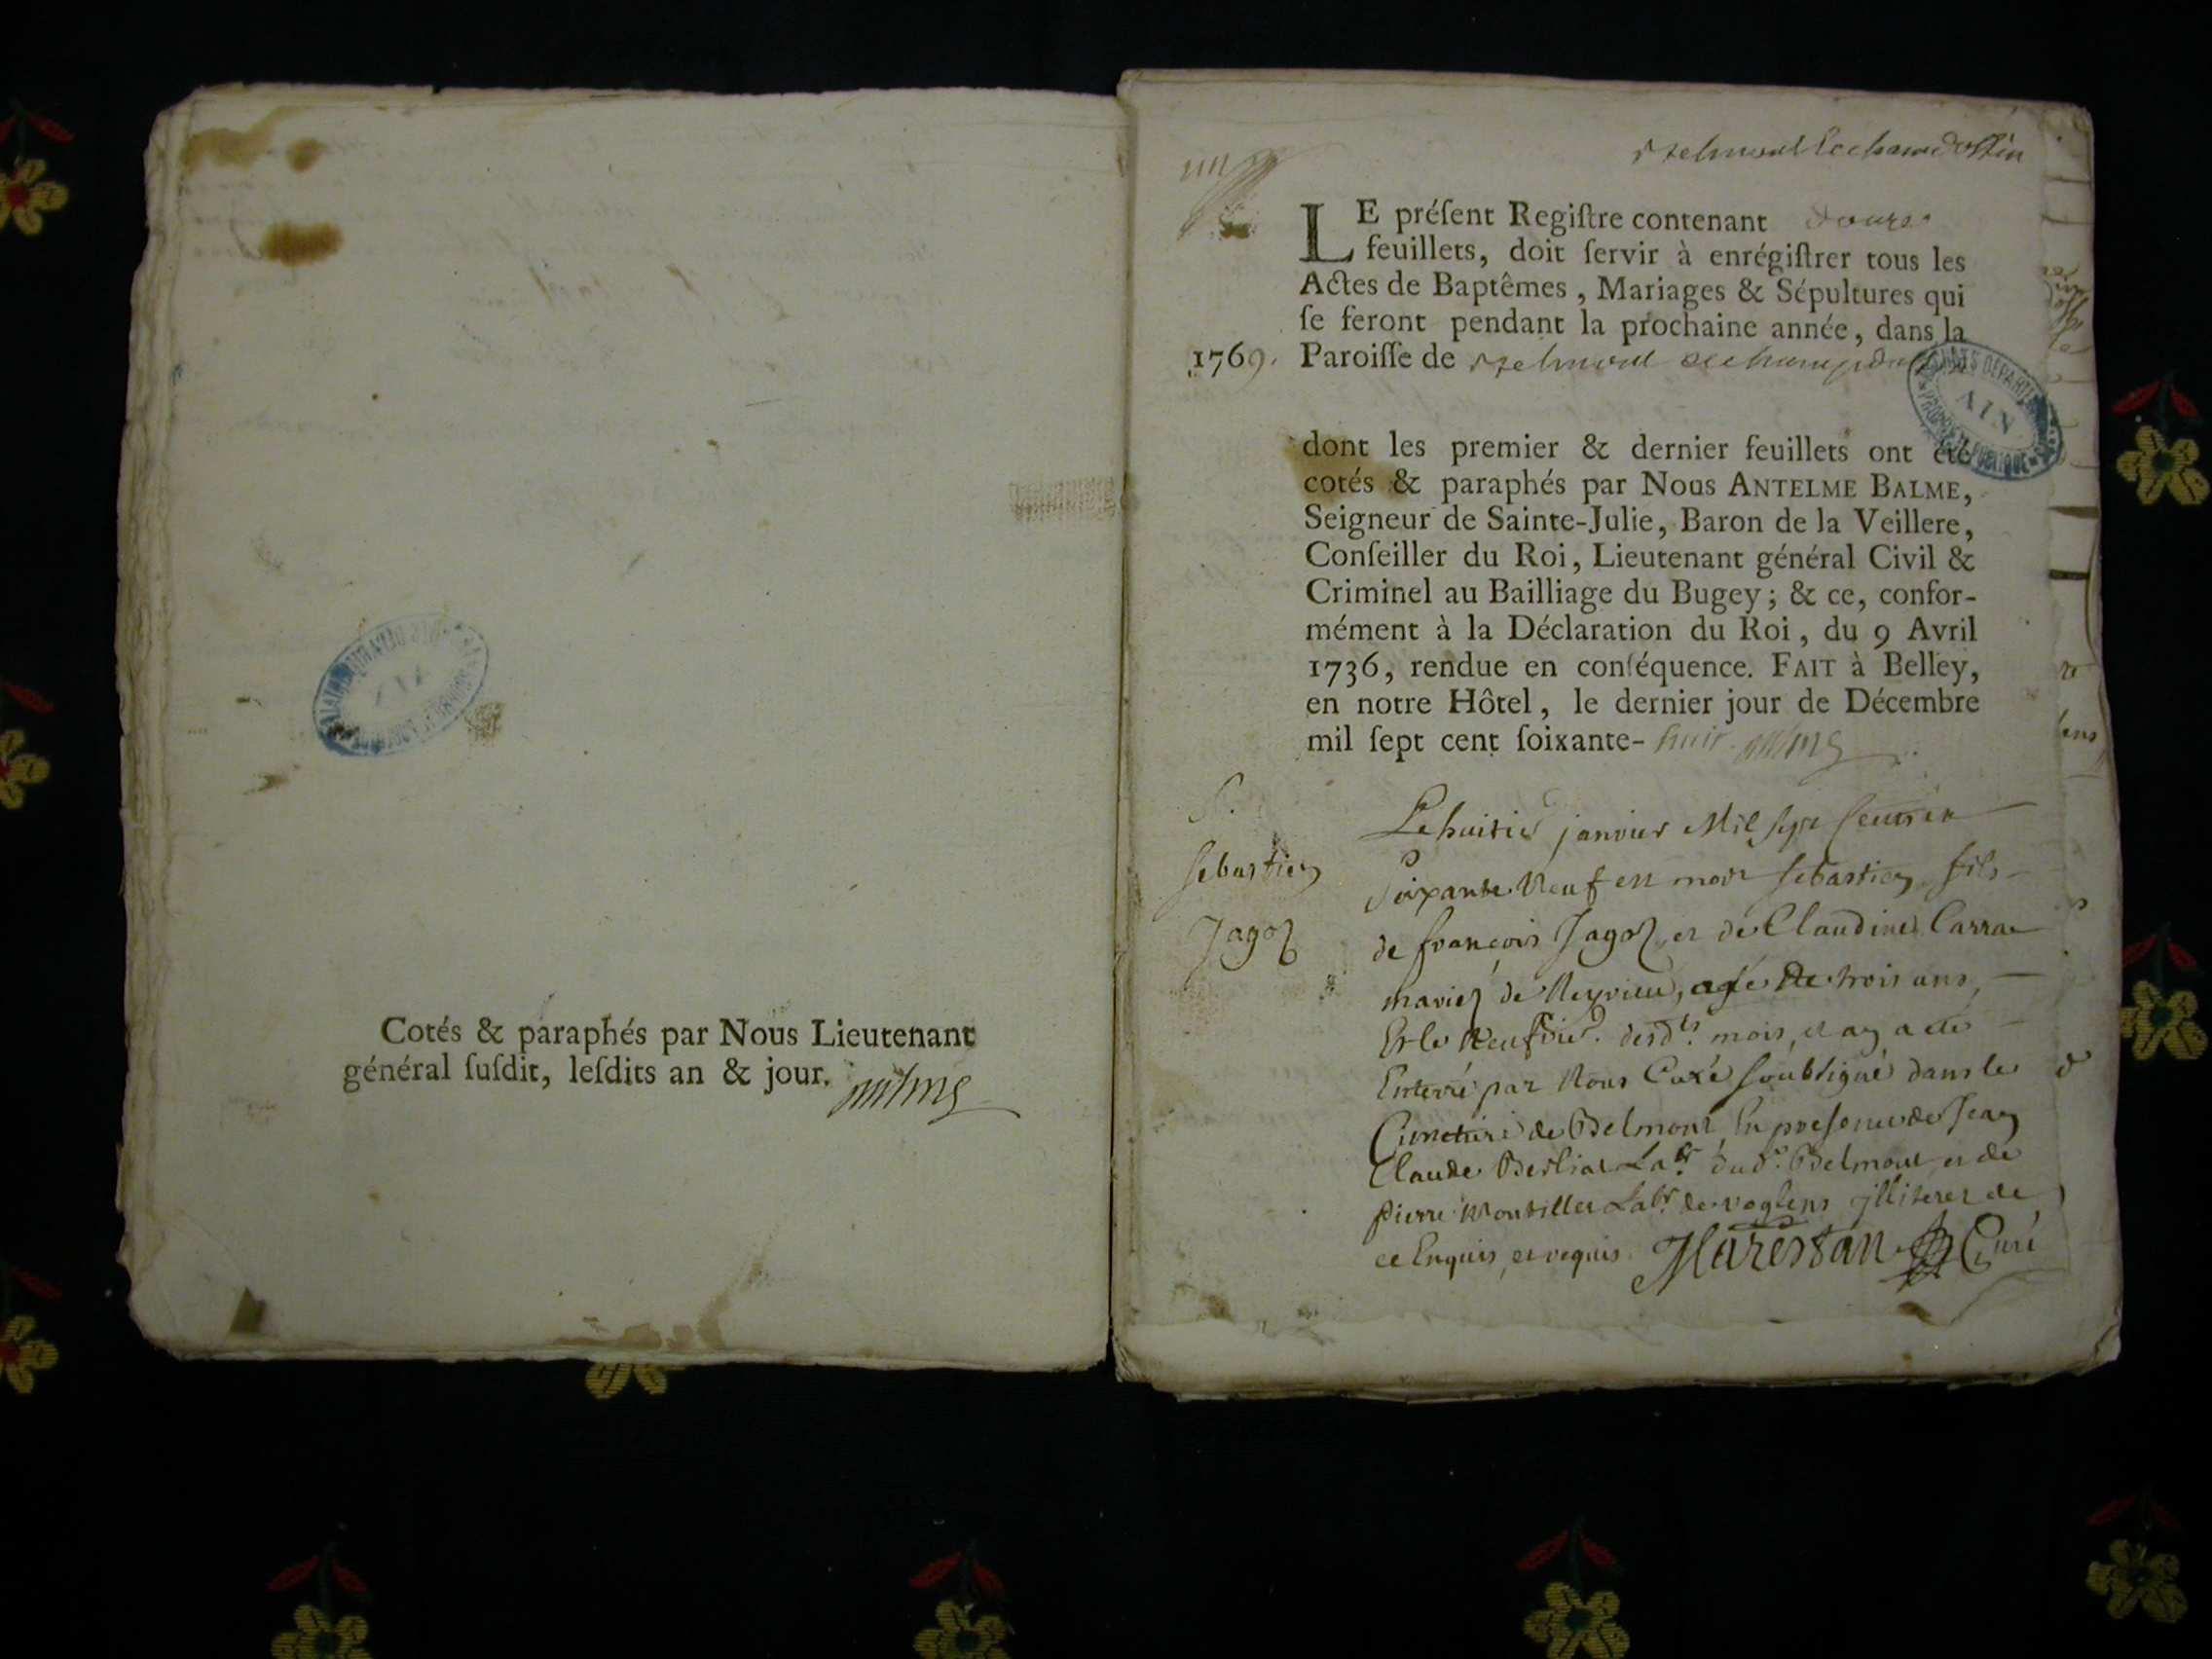 Cotés & paraphés par Nous Lieutenant
général ſuſdit, leſdits an & jour.
LE préſent Regiſtre contenant douze
feuillets, doit ſervir à enrégiſtrer tous les
Actes de Baptêmes, Mariages & Sépultures qui
ſe feront pendant la prochaine année, dans la
1769. Paroiſſe de Belmont
AIN
dont les premier & dernier feuillets ont été
cotés & paraphés par Nous ANTELME BALME,
Seigneur de Sainte-Julie, Baron de la Veillere,
Conſeiller du Roi, Lieutenant général Civil &
Criminel au Bailliage du Bugey; & ce, confor-
mément à la Déclaration du Roi, du 9 Avril
1736, rendue en conſéquence. FAIT à Belley,
en notre Hôtel, le dernier jour de Décembre
mil ſept cent ſoixante- huit
S.
Sebastien
Jagoz
Le huitie janvier Mil sept Cent
Soixante Neuf est mort Sebastien fils
de françois Jagoz et de Claudine Carra
mariez de Neyrieu, agé de trois ans,
Et le Neufvie desdts mois, et an a eté
Enterré par Nous Curé soubsigné dans le
Cimetiere de Belmont En presence de Jean
Claude Berliat Labr dud. Belmont et de
pierre Montillet Labr de voglens jlliterez de
ce Enquis, et requis. Marestan Curé